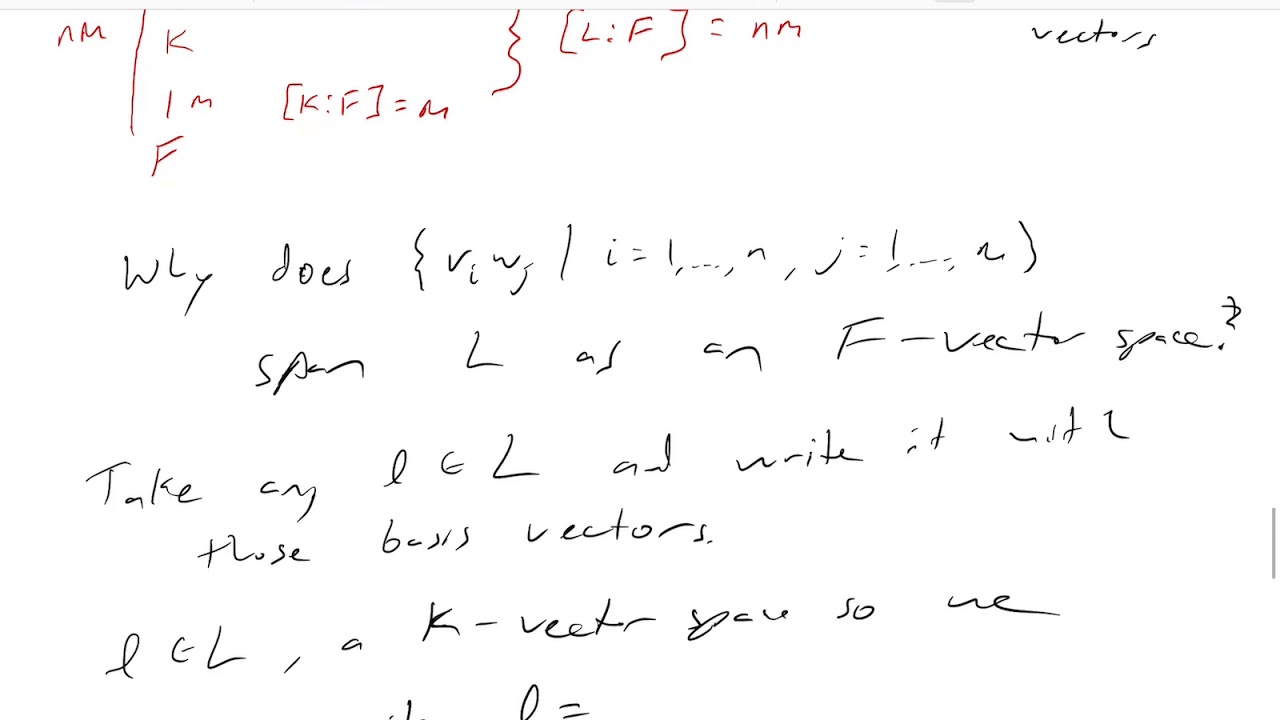 nm | K } [L:F] = nm vectors
| m [K:F] = m
F
Why does {v_i w_j | i = 1,...,n, j = 1,...,m}
span L as an F-vector space?
Take any l ∈ L and write it with
those basis vectors.
l ∈ L, a K-vector space so we
l =